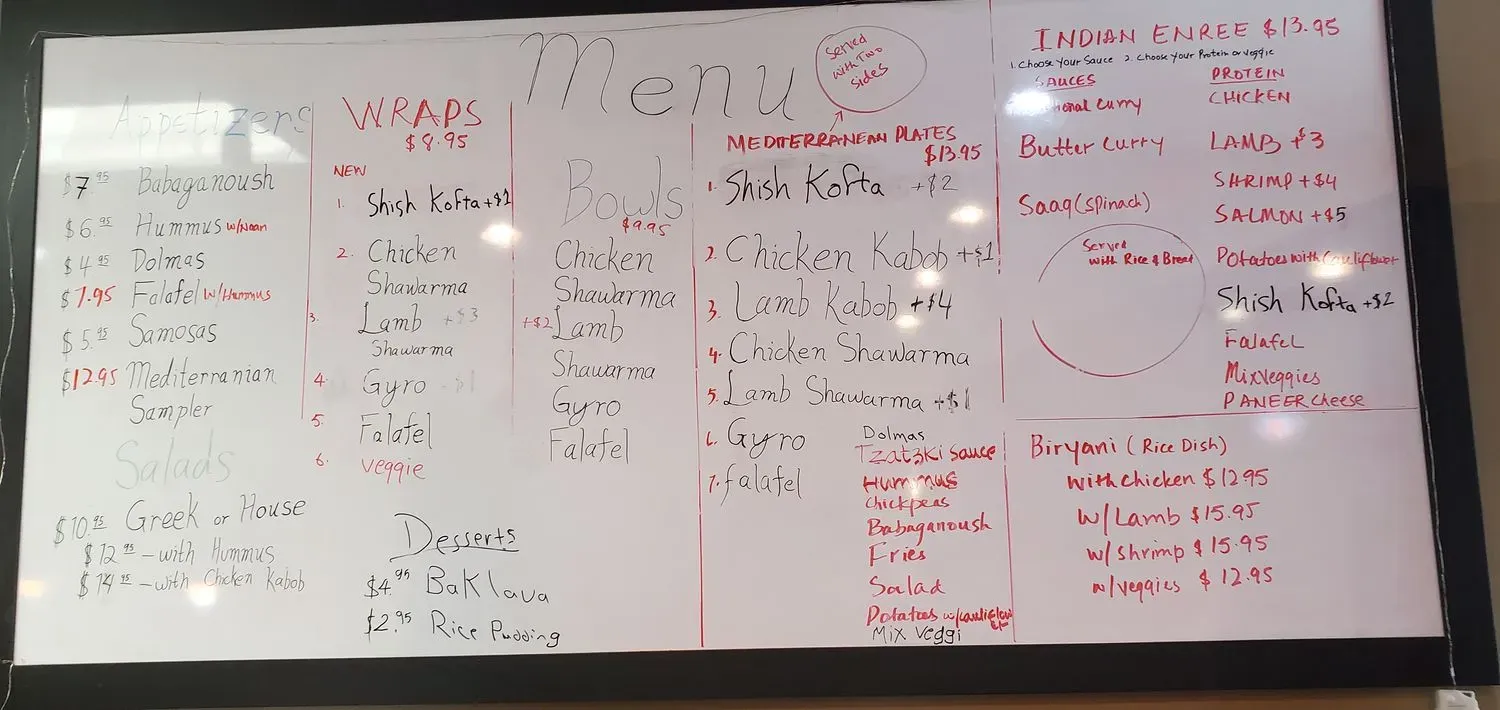 Menu
Served
with Two
sides
Appetizers
$7.95 Babaganoush
$6.95 Hummus w/Naan
$4.95 Dolmas
$7.95 Falafel w/Hummus
$5.95 Samosas
$12.95 Mediterranian
Sampler
Salads
$10.95 Greek or House
$12.95 - with Hummus
$14.95 - with Chicken Kabob
WRAPS
$8.95
NEW
1. Shish Kofta +$1
2. Chicken
Shawarma
3. Lamb +$3
Shawarma
4. Gyro +$1
5. Falafel
6. Veggie
Desserts
$4.95 Baklava
$2.95 Rice Pudding
Bowls
$9.95
Chicken
Shawarma
+$2 Lamb
Shawarma
Gyro
Falafel
MEDITERRANEAN PLATES
$13.95
1. Shish Kofta +$2
2. Chicken Kabob +$1
3. Lamb Kabob +$4
4. Chicken Shawarma
5. Lamb Shawarma +$1
6. Gyro
7. falafel
Dolmas
Tzatzki sauce
Hummus
Chickpeas
Babaganoush
Fries
Salad
Potatoes
Mix Veggi
INDIAN ENREE $13.95
1. Choose Your Sauce 2. Choose Your Protein or veggie
SAUCES
Curry
Butter Curry
Saag (Spinach)
Served
with Rice & Bread
PROTEIN
CHICKEN
LAMB +$3
SHRIMP +$4
SALMON +$5
Potatoes with Cauliflower
Shish Kofta +$2
Falafel
Mix Veggies
PANEER Cheese
Biryani (Rice Dish)
With chicken $12.95
w/Lamb $15.95
w/shrimp $15.95
w/veggies $12.95